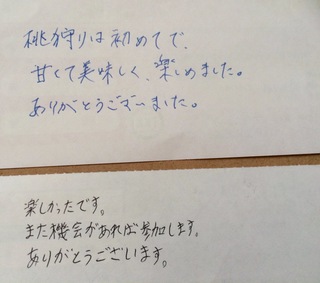 桃狩りは初めてで、
甘くて美味しく、楽しめました。
ありがとうございました。
楽しかったです。
また機会があれば参加します。
ありがとうございます。